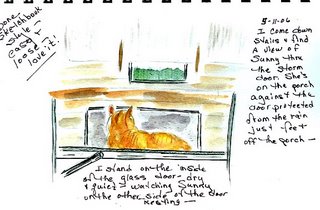 Done
sketchbook
style -
easy &
loose -
love it!
5-11-06
I come down
stairs & find
a view of
Sunny thru
the storm
door. She's
on the porch
against the
door protected
from the rain
just feet
off the porch -
I stand on the inside
of the glass door - dry
& quiet & watching Sunny
on the other side of the door
resting -